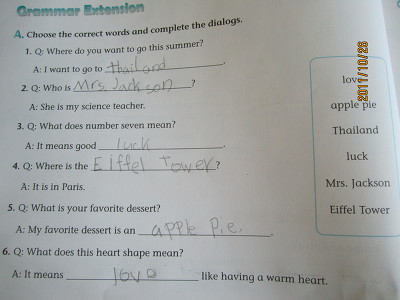 Grammar Extension
A. Choose the correct words and complete the dialogs.
1. Q: Where do you want to go this summer?
A: I want to go to thailand.
2. Q: Who is Mrs. Jackson?
A: She is my science teacher.
3. Q: What does number seven mean?
A: It means good luck.
4. Q: Where is the Eiffel Tower?
A: It is in Paris.
5. Q: What is your favorite dessert?
A: My favorite dessert is an apple Pie.
6. Q: What does this heart shape mean?
A: It means love like having a warm heart.
love
apple pie
Thailand
luck
Mrs. Jackson
Eiffel Tower
2011/10/26